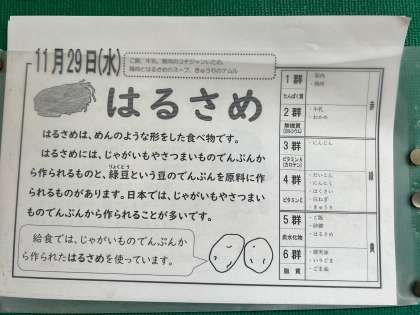 11月29日(水)
ご飯、牛乳、鶏肉のコチジャンいため、
鶏肉とはるさめのスープ、きゅうりのナムル
はるさめ
はるさめは、めんのような形をした食べ物です。
はるさめには、じゃがいもやさつまいものでんぷんか
ら作られるものと、緑豆という豆のでんぷんを原料に作
りょくとう
られるものがあります。日本では、じゃがいもやさつまい
ものでんぷんから作られることが多いです。
給食では、じゃがいものでんぷんか
ら作られたはるさめを使っています。
1群
たんぱく質
・鶏肉
2群
無機質
(カルシウム)
・牛乳
・わかめ
3群
ビタミンA
(カロテン)
・にんじん
4群
ビタミンC
・だいこん
・にんにく
・はくさい
・白ねぎ
・きゅうり
5群
炭水化物
・ご飯
・砂糖
・はるさめ
6群
脂質
・ごま油
赤
緑
黄